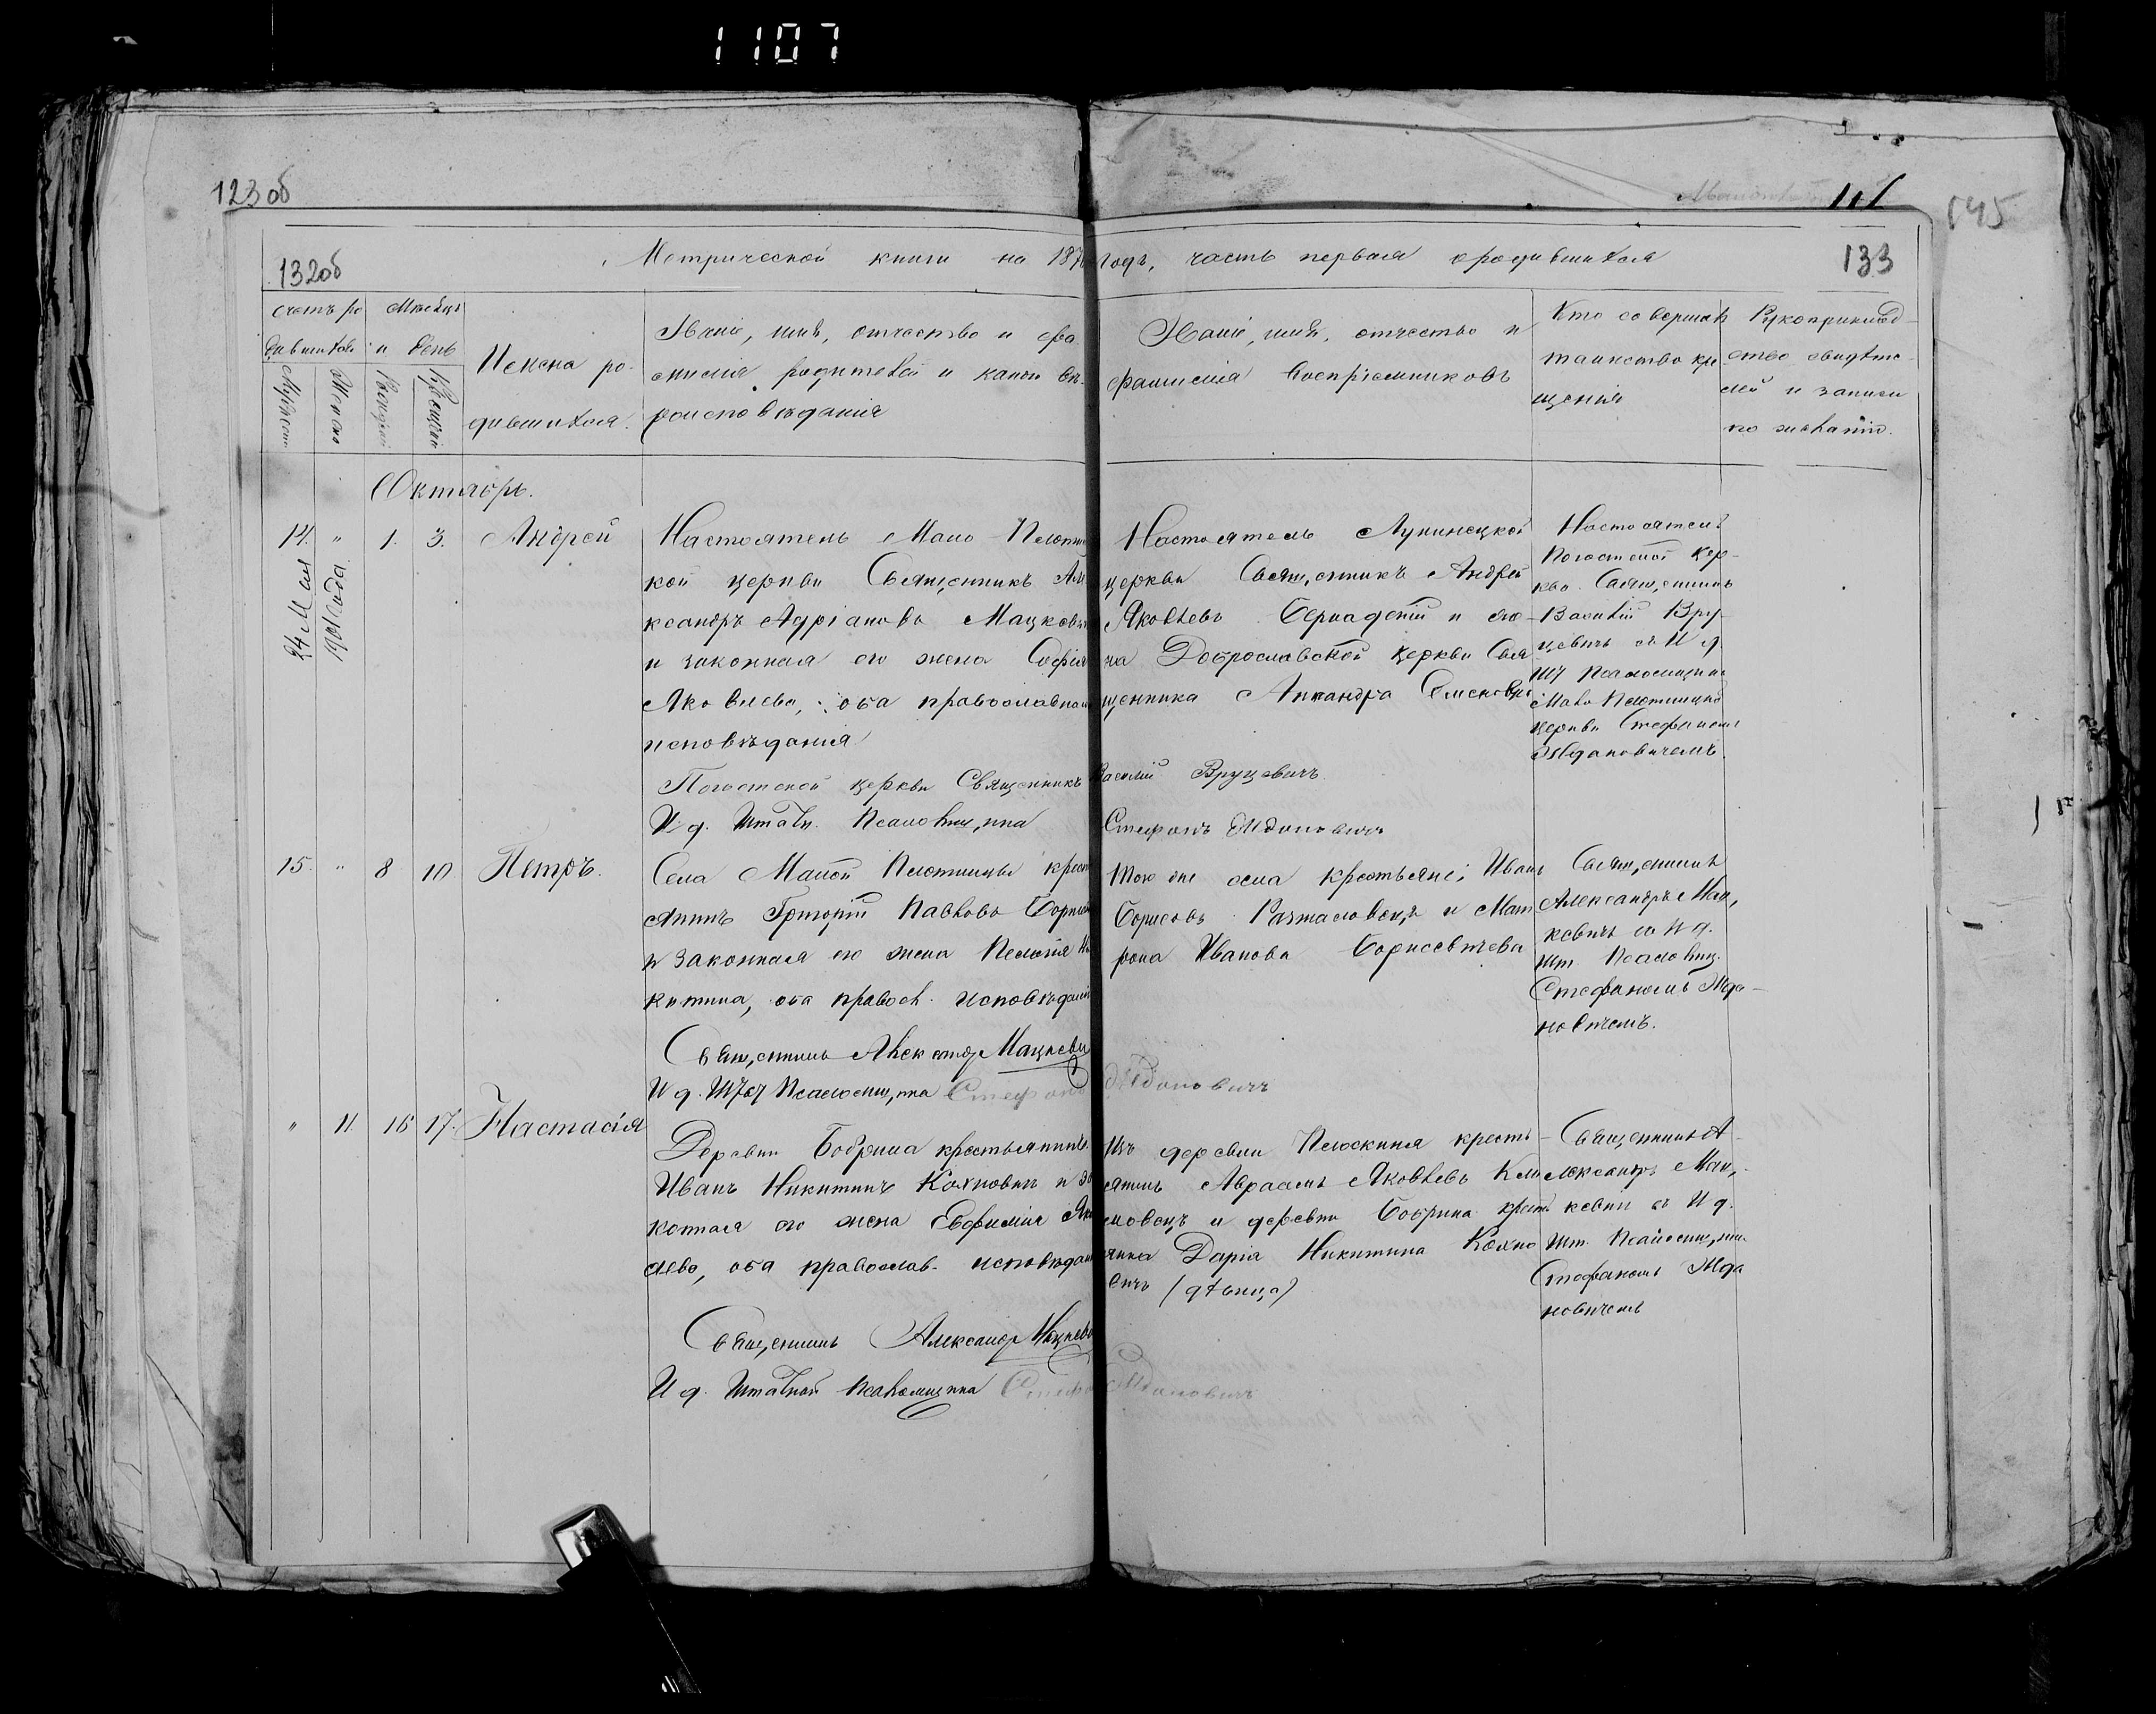 1107
123об
145
132об
Метрической книги на 187 годъ, часть первая о родившихся
133
Счетъ родившихся
Мѣсяцъ и день
Мужеска
Женска
Рожденія
Крещенія
Имена родившихся.
Званіе, имя, отчество и фамилія родителей и какого вѣроисповѣданія
Званіе, имя, отчество и фамилія воспріемниковъ
Кто совершалъ таинство крещенія
Рукоприкладство свидѣтелей и записи по желанію.
Октябрь.
14. " 1. 3. Андрей
24 Мая
1901 года
Настоятель Мало-Плотниц
кой церкви Священникъ Але
ксандръ Адріановъ Мацкеви
и законная его жена Софія
Яковлева, оба православнаго
исповѣданія
Настоятель Лунинецкой
церкви Священникъ Андрей
Яковлевъ Бернадскій и же
на Доброславской церкви Свя
щенника
Настоятель
Погостской цер-
кви Священникъ
Василій Вру-
цевичъ съ И д.
шт Псаломщика
Мало Плотницкой
церкви Стефаномъ
Ждановичемъ.
Погостской церкви Священникъ Василій Вруцевичъ
И д. Штатн. Псаломщика Стефанъ Ждановичъ
15. " 8 10 Петръ.
Села Малой Плотницы крест
янинъ Григорій Павловъ Борисе
и законная его жена Пелагія Ни
китина, оба правосл. исповѣданія
Того же села крестьяне; Иванъ
Борисовъ и Мат
рона Иванова Борисевичева
Священникъ
Александръ Мац,
кевичъ съ И д.
шт. Псаломщ.
Стефаномъ Жда-
новичемъ.
Священникъ Александр Мацкеви
И д. Штат Псаломщика Стефанъ Ждановичъ
" 11. 16 17. Настасія
Деревни Бобрика крестьянинъ
Иванъ Никитинъ Кохновичъ и за
конная его жена Евфимія Яков
лева, оба православ. исповѣдан
Изъ деревни Плоскиня кресть-
янинъ Авраамъ Яковлевъ Кли
мовецъ и деревни Бобрика крест
янка Дарія Никитина Кохно
вичъ (дѣвица)
Священникъ А-
лександръ Мац,-
кевичъ съ И д.
шт. Псаломщика
Стефаномъ Жда
новичемъ
Священникъ Александр Мацкеви
И д. Штатной псаломщика Стефанъ Ждановичъ